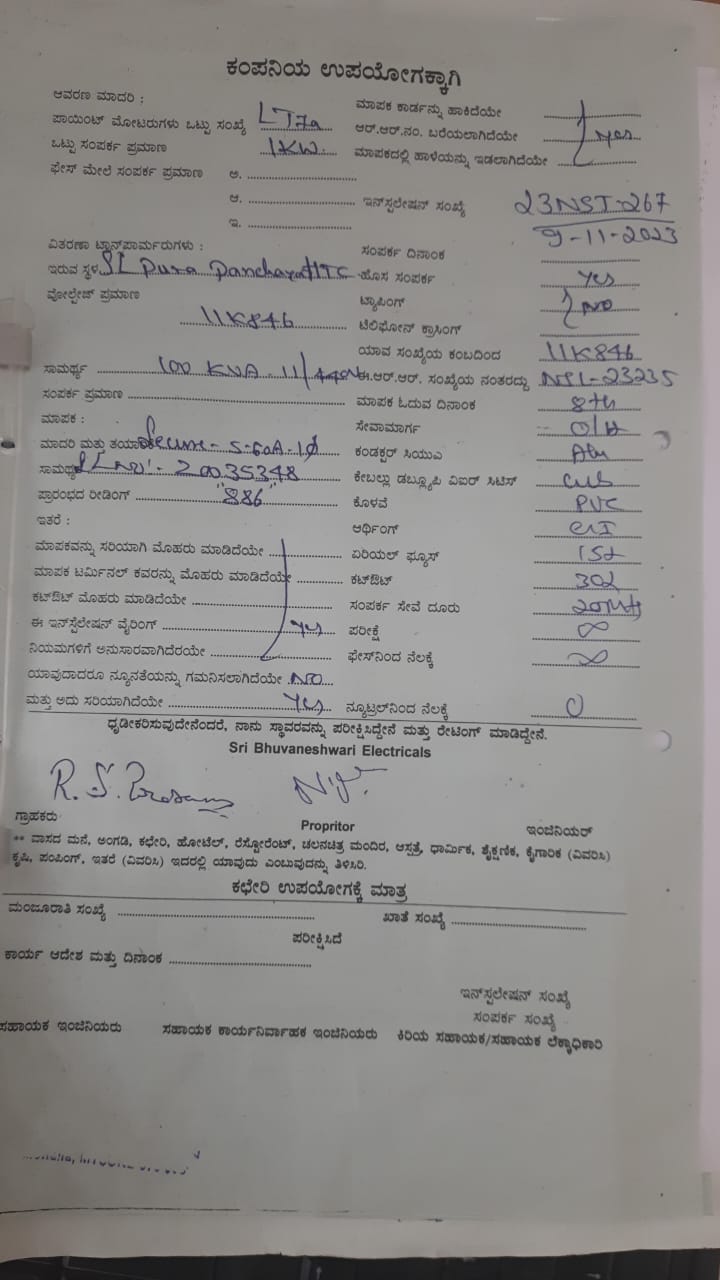 ಕಂಪನಿಯ ಉಪಯೋಗಕ್ಕಾಗಿ
ಆವರಣ ಮಾದರಿ : ಮಾಪಕ ಕಾರ್ಡನ್ನು ಹಾಕಿದೆಯೇ
ಪಾಯಿಂಟ್ ಮೋಟರುಗಳು ಒಟ್ಟು ಸಂಖ್ಯೆ LT7a ಆರ್.ಆರ್.ನಂ. ಬರೆಯಲಾಗಿದೆಯೇ yes
ಒಟ್ಟು ಸಂಪರ್ಕ ಪ್ರಮಾಣ 1KW. ಮಾಪಕದಲ್ಲಿ ಹಾಳೆಯನ್ನು ಇಡಲಾಗಿದೆಯೇ
ಫೇಸ್ ಮೇಲೆ ಸಂಪರ್ಕ ಪ್ರಮಾಣ ಅ.
ಆ. ಇನ್‌ಸ್ಟಲೇಷನ್ ಸಂಖ್ಯೆ 23NST-267
ಇ. 9-11-2023
ವಿತರಣಾ ಟ್ರಾನ್‌ಫಾರ್ಮರುಗಳು : ಸಂಪರ್ಕ ದಿನಾಂಕ
ಇರುವ ಸ್ಥಳ Pura Panchayat ITC ಹೊಸ ಸಂಪರ್ಕ yes
ವೋಲ್ಟೇಜ್ ಪ್ರಮಾಣ ಟ್ಯಾಪಿಂಗ್ NO
11K846 ಟೆಲಿಫೋನ್ ಕ್ರಾಸಿಂಗ್
ಯಾವ ಸಂಖ್ಯೆಯ ಕಂಬದಿಂದ 11K846
ಸಾಮರ್ಥ್ಯ 100 KVA. 11/440V ಈ.ಆರ್.ಆರ್. ಸಂಖ್ಯೆಯ ನಂತರದ್ದು NSL-23235
ಸಂಪರ್ಕ ಪ್ರಮಾಣ ಮಾಪಕ ಓದುವ ದಿನಾಂಕ 8th
ಮಾಪಕ : ಸೇವಾಮಾರ್ಗ O/H
ಮಾದರಿ ಮತ್ತು ತಯಾರಿಕೆ Secure - 5-60A-1Ø ಕಂಡಕ್ಟರ್ ಸಿಯುಎ Alu
ಸಾಮರ್ಥ್ಯ SL NO:- 20035348 ಕೇಬಲ್ಲು ಡಬ್ಲ್ಯೂಪಿ ವಿಐರ್ ಸಿಟಿಸ್
ಪ್ರಾರಂಭದ ರೀಡಿಂಗ್ "886" ಕೊಳವೆ PVC
ಇತರೆ : ಆರ್ಥಿಂಗ್ GI
ಮಾಪಕವನ್ನು ಸರಿಯಾಗಿ ಮೊಹರು ಮಾಡಿದೆಯೇ ಏರಿಯಲ್ ಫ್ಯೂಸ್
ಮಾಪಕ ಟರ್ಮಿನಲ್ ಕವರನ್ನು ಮೊಹರು ಮಾಡಿದೆಯೇ ಕಟ್‌ಔಟ್
ಕಟ್‌ಔಟ್ ಮೊಹರು ಮಾಡಿದೆಯೇ ಸಂಪರ್ಕ ಸೇವೆ ದೂರು 20Mts
ಈ ಇನ್‌ಸ್ಟಲೇಷನ್ ವೈರಿಂಗ್ Yes ಪರೀಕ್ಷೆ ∞
ನಿಯಮಗಳಿಗೆ ಅನುಸಾರವಾಗಿದೆರಯೇ ಫೇಸ್‌ನಿಂದ ನೆಲಕ್ಕೆ ∞
ಯಾವುದಾದರೂ ನ್ಯೂನತೆಯನ್ನು ಗಮನಿಸಲಾಗಿದೆಯೇ NO
ಮತ್ತು ಅದು ಸರಿಯಾಗಿದೆಯೇ Yes ನ್ಯೂಟ್ರಲ್‌ನಿಂದ ನೆಲಕ್ಕೆ 0
ಧೃಡೀಕರಿಸುವುದೇನೆಂದರೆ, ನಾನು ಸ್ಥಾವರವನ್ನು ಪರೀಕ್ಷಿಸಿದ್ದೇನೆ ಮತ್ತು ರೇಟಿಂಗ್ ಮಾಡಿದ್ದೇನೆ.
Sri Bhuvaneshwari Electricals
ಗ್ರಾಹಕರು Propritor ಇಂಜಿನಿಯರ್
** ವಾಸದ ಮನೆ, ಅಂಗಡಿ, ಕಛೇರಿ, ಹೋಟೆಲ್, ರೆಸ್ಟೋರೆಂಟ್, ಚಲನಚಿತ್ರ ಮಂದಿರ, ಆಸ್ಪತ್ರೆ, ಧಾರ್ಮಿಕ, ಶೈಕ್ಷಣಿಕ, ಕೈಗಾರಿಕ (ವಿವರಿಸಿ)
ಕೃಷಿ, ಪಂಪಿಂಗ್, ಇತರೆ (ವಿವರಿಸಿ) ಇದರಲ್ಲಿ ಯಾವುದು ಎಂಬುವುದನ್ನು ತಿಳಿಸಿರಿ.
ಕಛೇರಿ ಉಪಯೋಗಕ್ಕೆ ಮಾತ್ರ
ಮಂಜೂರಾತಿ ಸಂಖ್ಯೆ ಖಾತೆ ಸಂಖ್ಯೆ
ಪರೀಕ್ಷಿಸಿದೆ
ಕಾರ್ಯ ಆದೇಶ ಮತ್ತು ದಿನಾಂಕ
ಇನ್‌ಸ್ಟಲೇಷನ್ ಸಂಖ್ಯೆ
ಸಂಪರ್ಕ ಸಂಖ್ಯೆ
ಸಹಾಯಕ ಇಂಜಿನಿಯರು ಸಹಾಯಕ ಕಾರ್ಯನಿರ್ವಾಹಕ ಇಂಜಿನಿಯರು ಕಿರಿಯ ಸಹಾಯಕ/ಸಹಾಯಕ ಲೆಕ್ಕಾಧಿಕಾರಿ